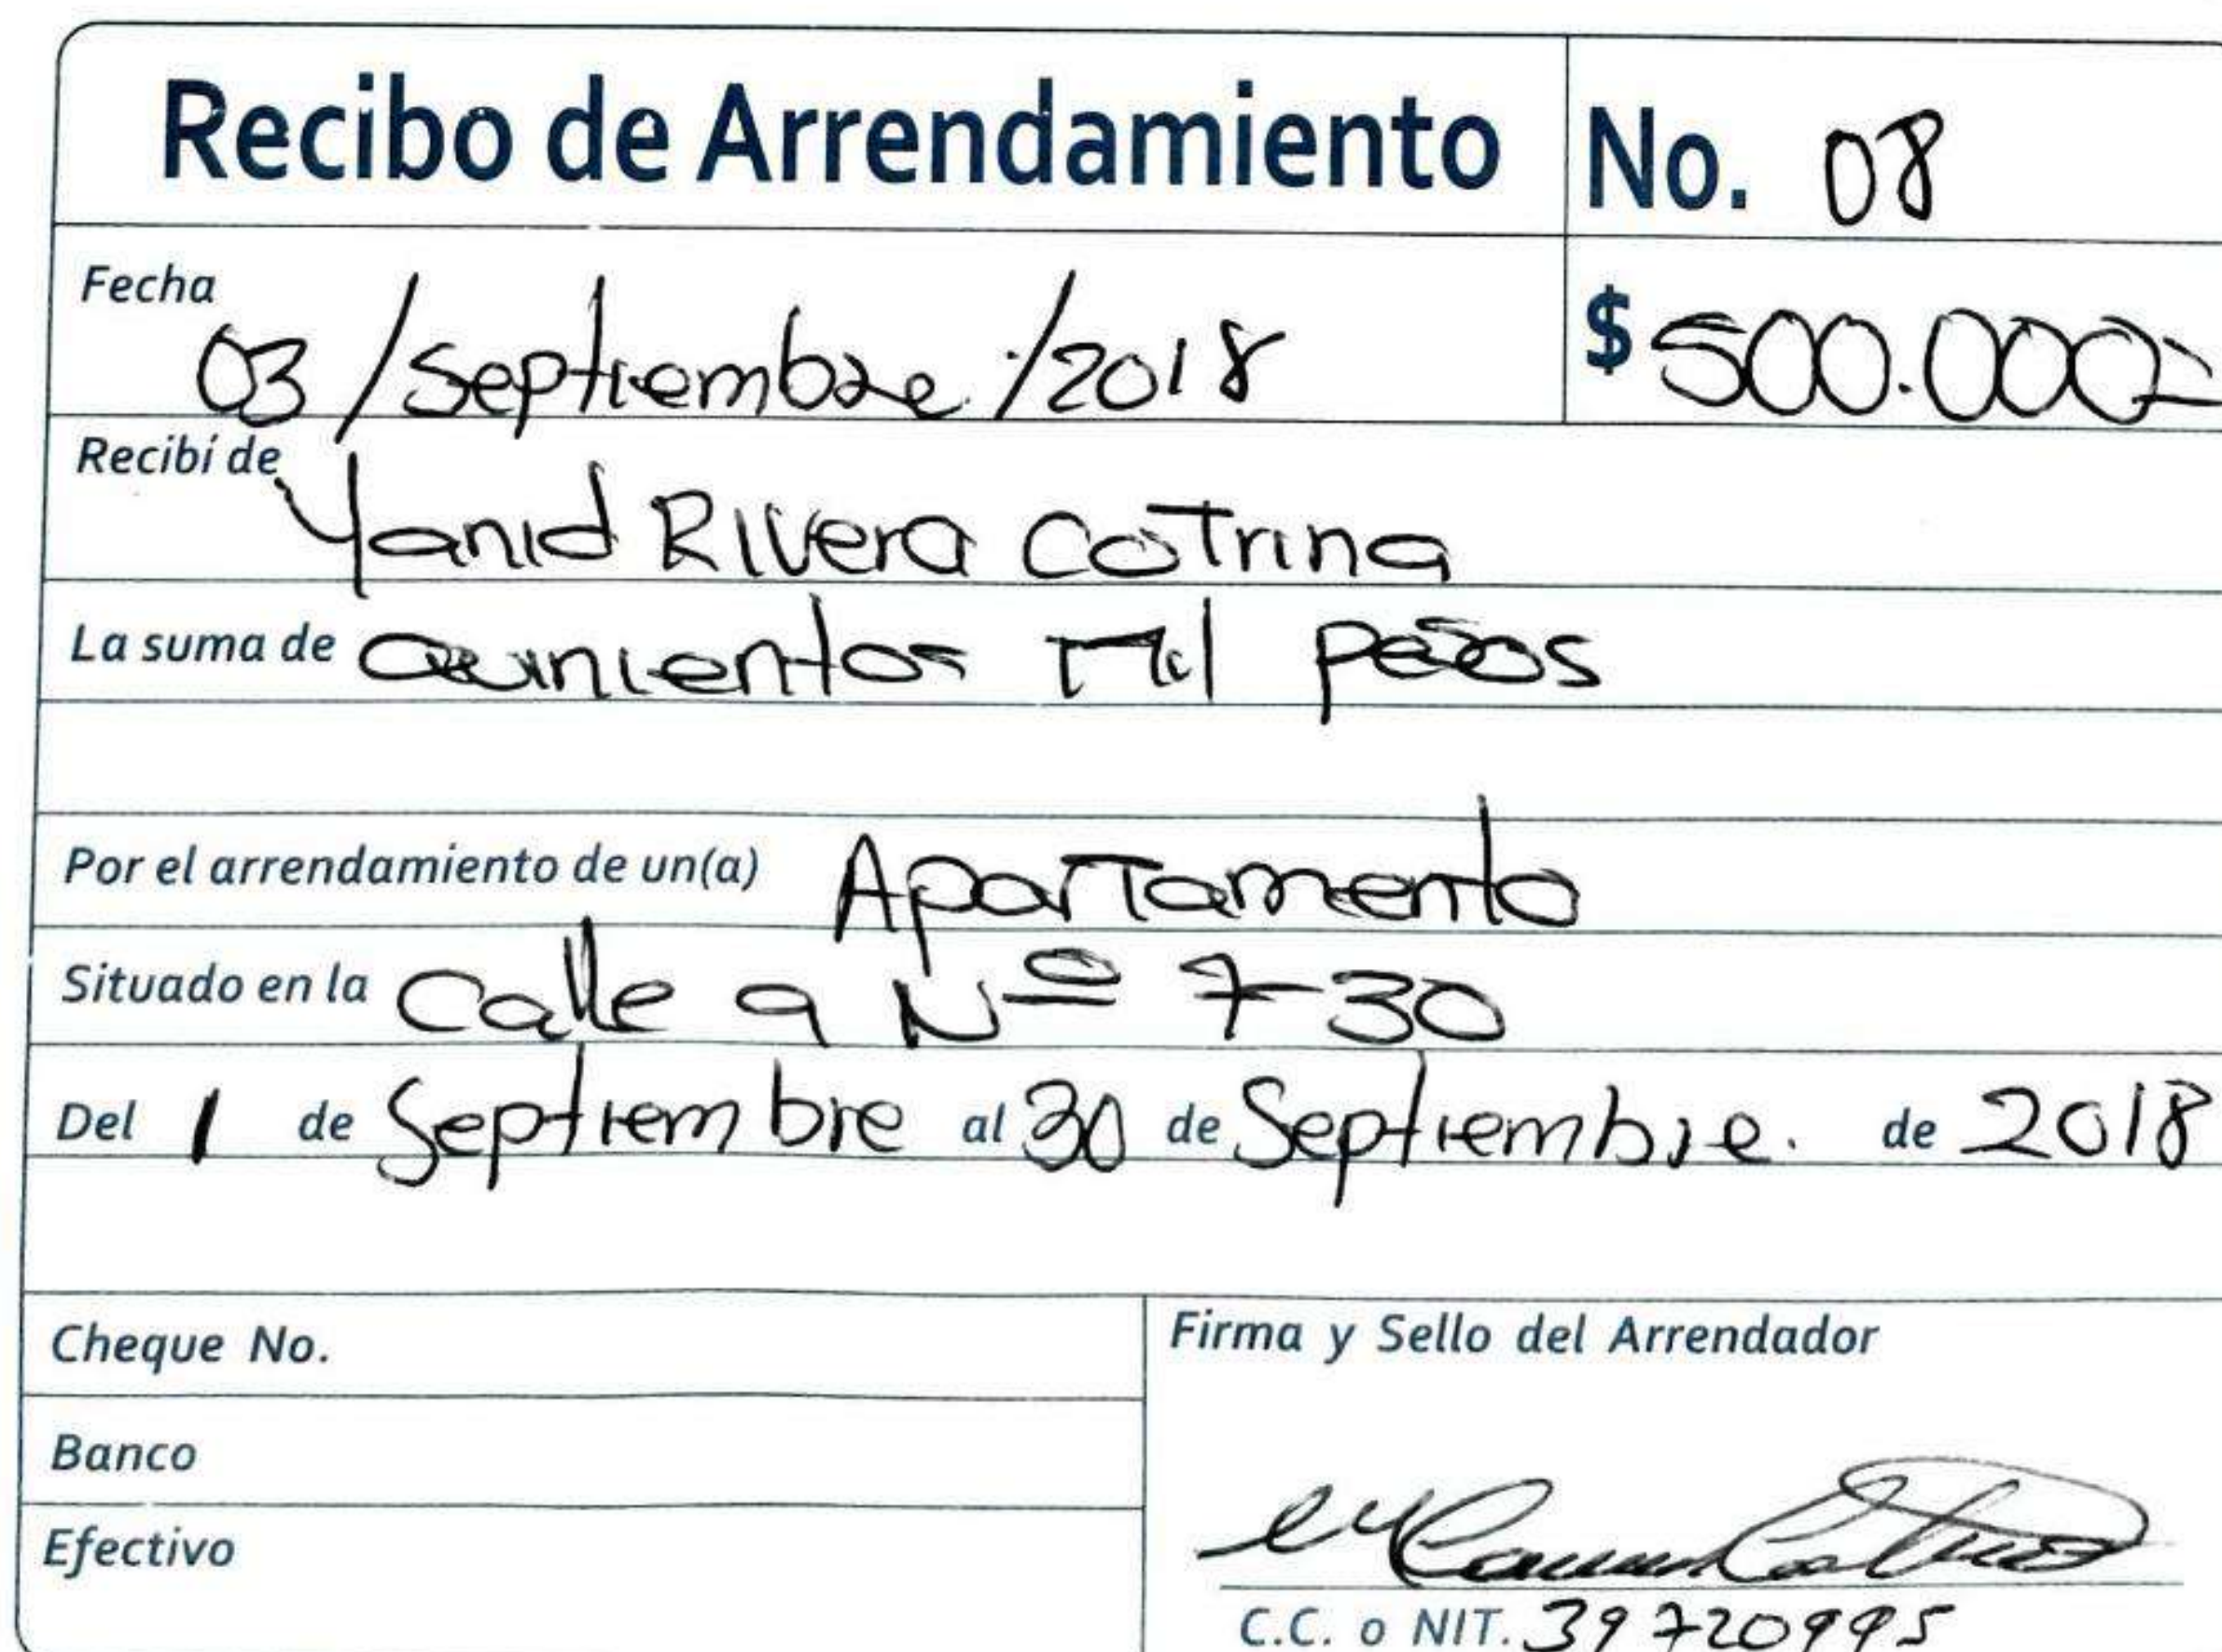 Recibo de Arrendamiento No. 08
Fecha 03/Septiembre/2018 $500.000=
Recibí de Yanid Rivera Cotrina
La suma de Quinientos Mil pesos
Por el arrendamiento de un(a) Apartamento
Situado en la Calle 9 Nº 7-30
Del 1 de Septiembre al 30 de Septiembre. de 2018
Cheque No.
Firma y Sello del Arrendador
Banco
Efectivo
C.C. o NIT. 39720995